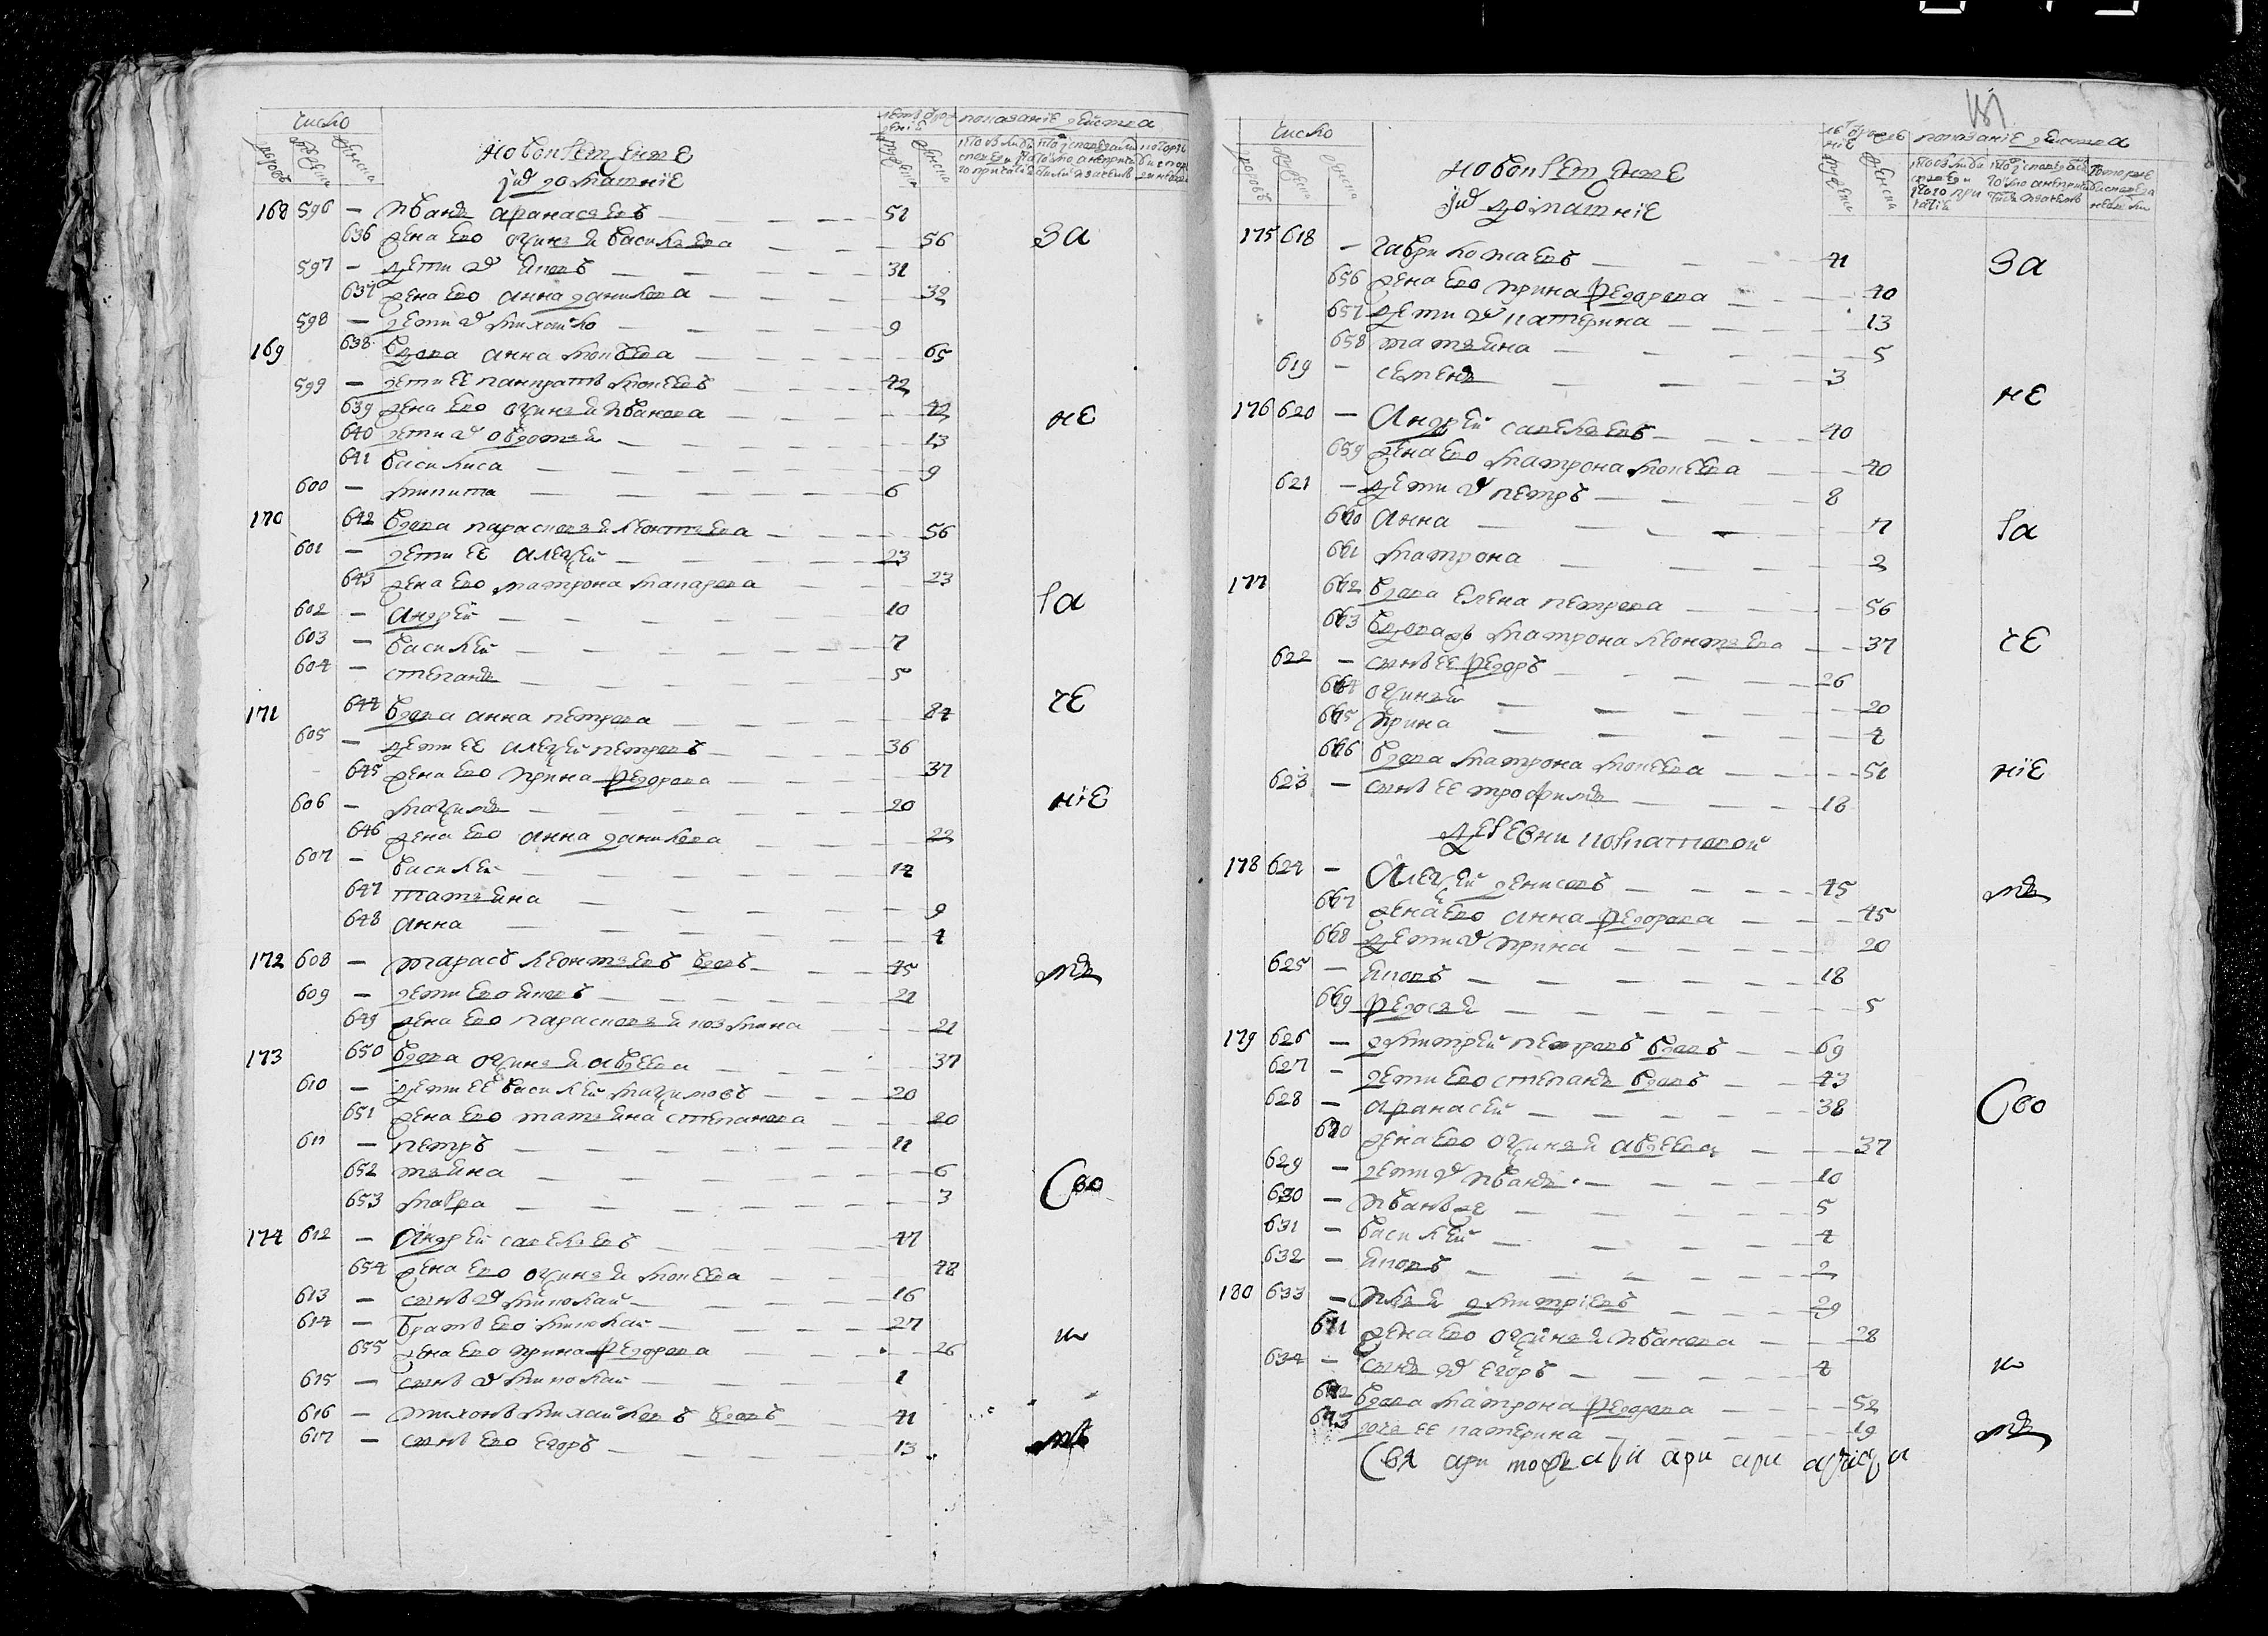 число
дворовъ мужеска женска
Новокрещеные
и их домашние
лета от рождения
мужеска женска
показание действа
168 596 — Иванъ Афанасьевъ — 51
636 жена ево Оксинья Васильева — 56
597 — дети их Яковъ — 31
637 жена ево Анна Данилова — 32
598 — дети их Михайло — 9
169 638 вдова Анна Моисеева — 65
599 — дети ее Панкратъ Моисеевъ — 42
639 жена ево Оксинья Иванова — 42
640 дети их Овдотья — 13
641 Василиса — 9
600 — Микита — 6
170 642 вдова Парасковья Леонтьева — 56
601 — дети ее Алексей — 23
643 жена ево Матрона Макарова — 23
602 — Андрей — 10
603 — Василей — 7
604 — Степанъ — 5
171 644 вдова Анна Петрова — 84
605 — дети ее Алексей Петровъ — 36
645 жена ево Ирина Федорова — 37
606 — Максимъ — 20
646 жена ево Анна Данилова — 22
607 — Василей — 14
647 Татьяна — 9
648 Анна — 4
172 608 — Тарасъ Леонтьевъ вдовъ — 45
609 — дети ево Яковъ — 21
649 жена ево Парасковья Козмина — 21
173 650 вдова Оксинья Авдеева — 37
610 — дети ее Василей Максимовъ — 20
651 жена ево Татьяна Степанова — 20
611 — Петръ — 11
652 Татьяна — 6
653 Мавра — 3
174 612 — Андрей Савельевъ — 47
654 жена ево Оксинья Моисеева — 48
613 — сынъ их Миколай — 16
614 — братъ ево Миколай — 27
655 жена ево Ирина Федорова — 26
615 — сынъ их Миколай — 1
616 — Тихонъ Михайловъ вдовъ — 41
617 — сынъ ево Егоръ — 13
за
не
ра
че
ние
мъ
Сво
и
мъ
число
дворовъ мужеска женска
Новокрещеные
и их домашние
показание действа
175 618 — Гаврило Исаевъ — 41
656 жена ево Ирина Федорова — 40
657 дети их Катерина — 13
658 Татьяна — 5
619 — Семенъ — 3
176 620 — Андрей Савельевъ — 40
659 жена ево Матрона Моисеева — 40
621 — дети их Петръ — 8
660 Анна — 7
661 Матрона — 2
177 662 вдова Елена Петрова — 56
663 вдова ж Матрона Леонтьева — 37
622 — сынъ ее Федоръ — 26
664 Оксинья — 20
665 Ирина — 4
666 вдова Матрона Моисеева — 51
623 — сынъ ее Трофимъ — 18
Деревни
178 624 — Алексей Денисовъ — 45
667 жена ево Анна Федорова — 45
668 дети их Ирина — 20
625 — Яковъ — 18
669 Федосья — 5
179 626 — Дмитрей Петровъ вдовъ — 69
627 — дети ево Степанъ вдовъ — 43
628 — Афанасей — 38
670 жена ево Оксинья Авдеева — 37
629 — дети их Иванъ — 10
630 — Иванъ же — 5
631 — Василей — 4
632 — Яковъ — 2
180 633 — Илья Дмитриевъ — 29
671 жена ево Оксинья Иванова — 28
634 — сынъ их Егоръ — 4
672 вдова Матрона Федорова — 52
673 дочь ее Катерина — 19
за
не
ра
че
ние
мъ
Сво
и
мъ